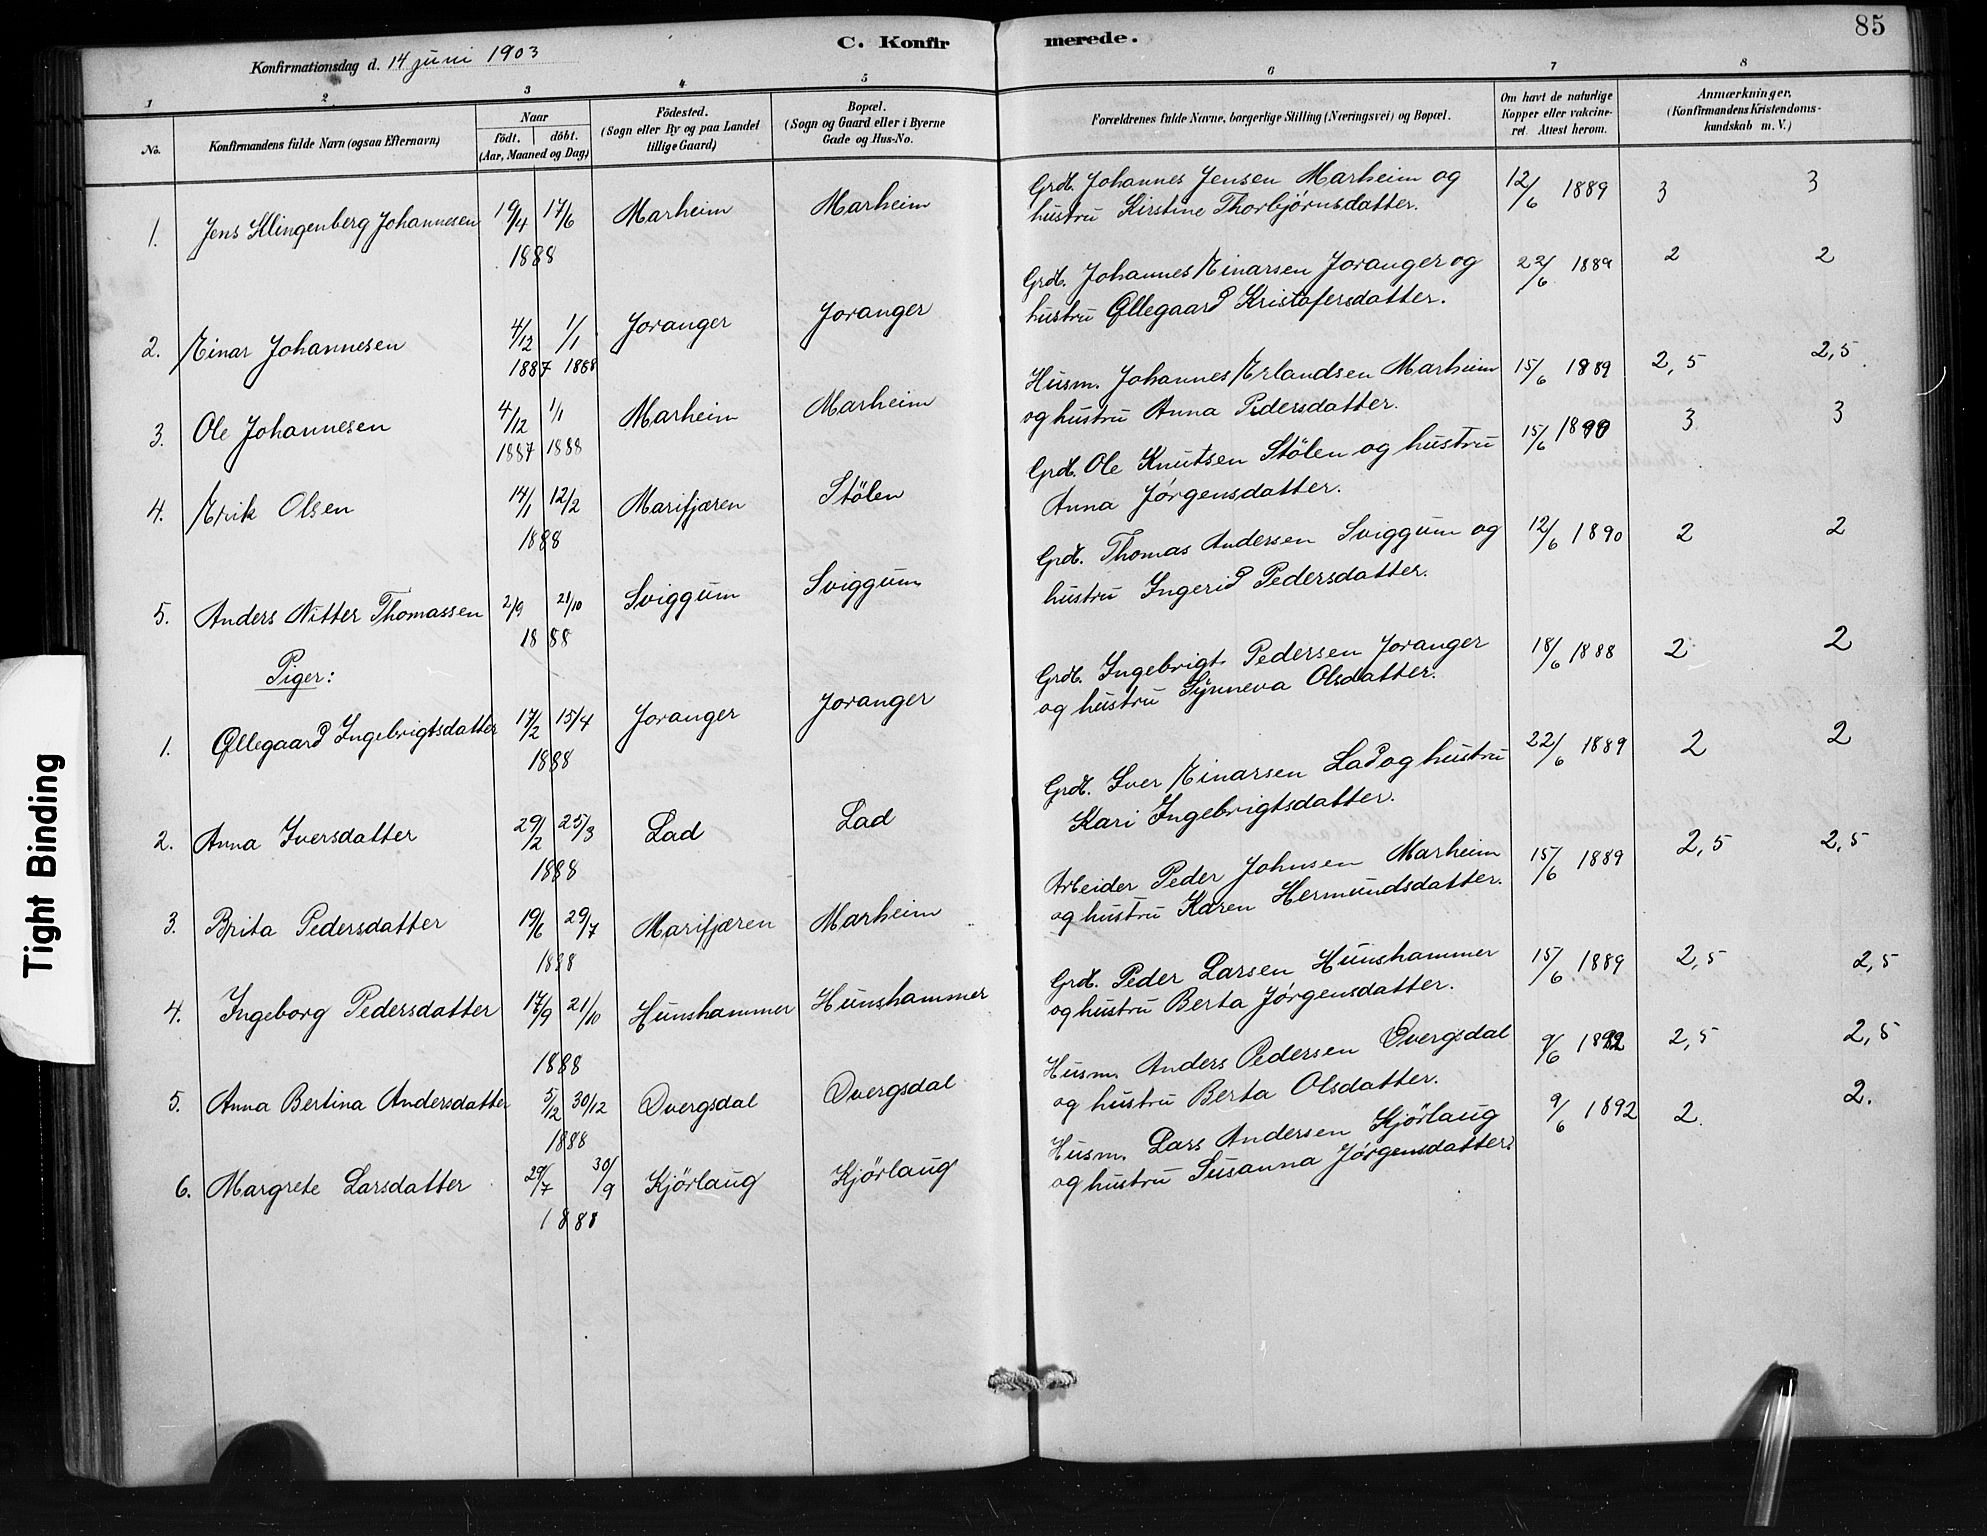 C. Konfirmerede. 85
Konfirmationsdag d. 14 juni 1903
1 2 3 4 5 6 7 8
No.
Konfirmandens fulde Navn (ogsaa Efternavn)
Naar
födt. döbt.
(Aar, Maaned og Dag)
Födested.
(Sogn eller By og paa Landet
tillige Gaard)
Bopæl.
(Sogn og Gaard eller i Byerne
Gade og Hus-No.
Forældrenes fulde Navne, borgerlige Stilling (Næringsvei) og Bopæl.
Om havt de naturlige
Kopper eller vakcine-
ret. Attest herom.
Anmærkninger,
(Konfirmandens Kristendoms-
kundskab m. V.)
1. Jens Klingenberg Johannesen 19/4 17/6 Marheim Marheim Grdb. Johannes Jensen Marheim og 12/6 1889 3 3
1888 hustru Kirstine Thorbjørnsdatter.
2. Einar Johannesen 4/12 1/1 Joranger Joranger Grdb. Johannes Einarsen Joranger og 22/6 1889 2 2
1887 1888 hustru Øllegaard Kristofersdatter.
3. Ole Johannesen 4/12 1/1 Marheim Marheim Husm. Johannes Erlandsen Marheim 15/6 1889 2,5 2,5
1887 1888 og hustru Anna Pedersdatter.
4. Erik Olsen 14/1 12/2 Marifjæren Stölen Grdb. Ole Knutsen Stölen og hustru 15/6 1890 3 3
1888 Anna Jørgensdatter.
5. Anders Nitter Thomassen 2/9 21/10 Sviggum Sviggum Grdb. Thomas Andersen Sviggum og 12/6 1890 2 2
1888 hustru Ingerid Pedersdatter.
Piger:
1. Øllegaard Ingebrigtsdatter 17/2 15/4 Joranger Joranger Grdb. Ingebrigt Pedersen Joranger 18/6 1888 2 2
1888 og hustru Synneva Olsdatter.
2. Anna Iversdatter 29/2 25/3 Lad Lad Grdb. Iver Einarsen Lad og hustru 22/6 1889 2 2
1888 Kari Ingebrigtsdatter.
3. Brita Pedersdatter 19/6 29/7 Marifjæren Marheim Arbeider Peder Johnsen Marheim 15/6 1889 2,5 2,5
1888 og hustru Karen Hermundsdatter.
4. Ingeborg Pedersdatter 17/9 21/10 Hunshammer Hunshammer Grdb. Peder Larsen Hunshammer 15/6 1889 2,5 2,5
1888 og hustru Berta Jørgensdatter.
5. Anna Bertina Andersdatter 5/12 30/12 Dvergsdal Dvergsdal Husm. Anders Pedersen Dvergsdal 9/6 1892 2,5 2,5
1888 og hustru Berta Olsdatter.
6. Margrete Larsdatter 29/7 30/9 Kjörlaug Kjörlaug Husm. Lars Andersen Kjörlaug 9/6 1892 2. 2.
1888 og hustru Susanna Jørgensdatter.
Tight Binding